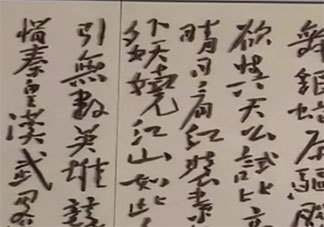 舞銀蛇原驅腊
欲與天公試比高
晴日看紅裝素
外妖嬈江山如此
引無數英雄競
惜秦皇漢武畧